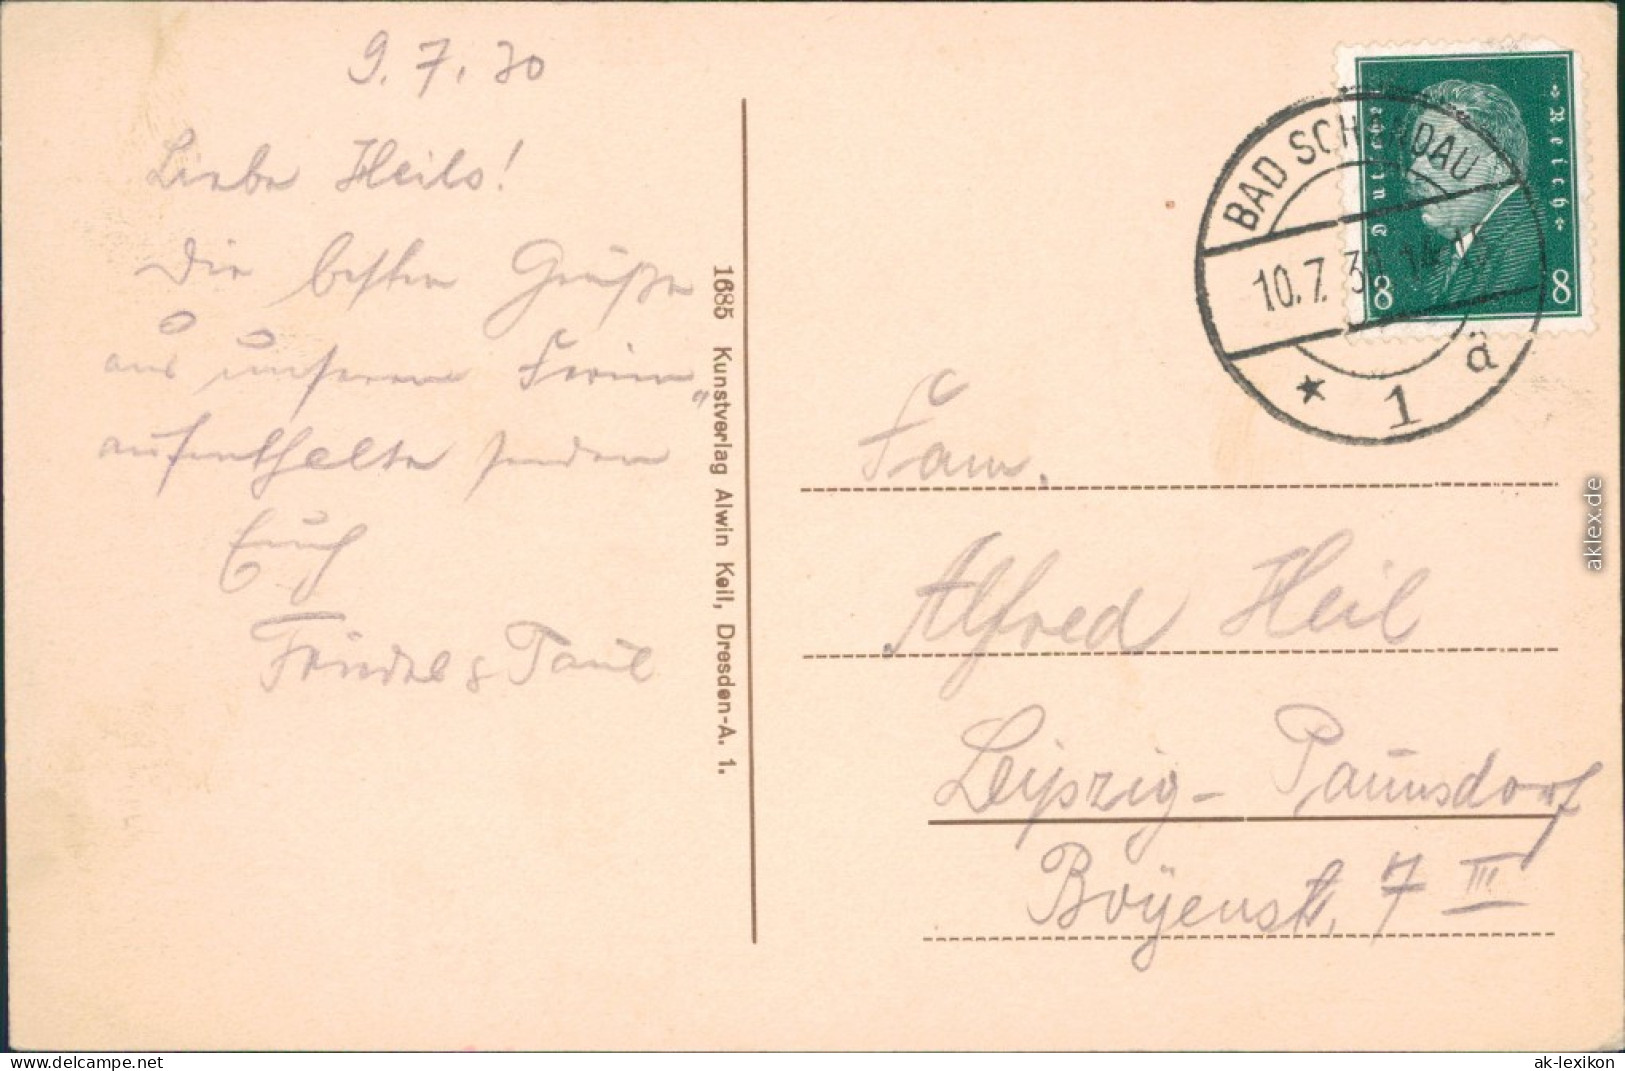 9. 7. 30
Liebe Heils!
Die besten Grüße
aus unserem Ferien„
aufenthalte senden
Euch
Friedel & Paul
1685 Kunstverlag Alwin Keil, Dresden-A. 1.
Deutsches Reich
8 8
BAD SCHANDAU
10.7.30 14-15
* 1 a
Fam.
Alfred Heil
Leipzig - Paunsdorf
Boÿenst. 7 III
aklex.de
www.delcampe.net
ak-lexikon